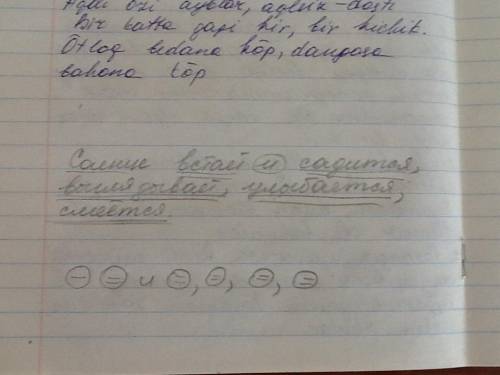 özi ayblar,
bir katta gapi bir kichik.
Otloq bedana köp, dangasa
bahona köp
Солнце встаёт и садится,
выглядывает, улыбается,
смеётся.
⊖ ⊜ и ⊜, ⊜, ⊜, ⊜